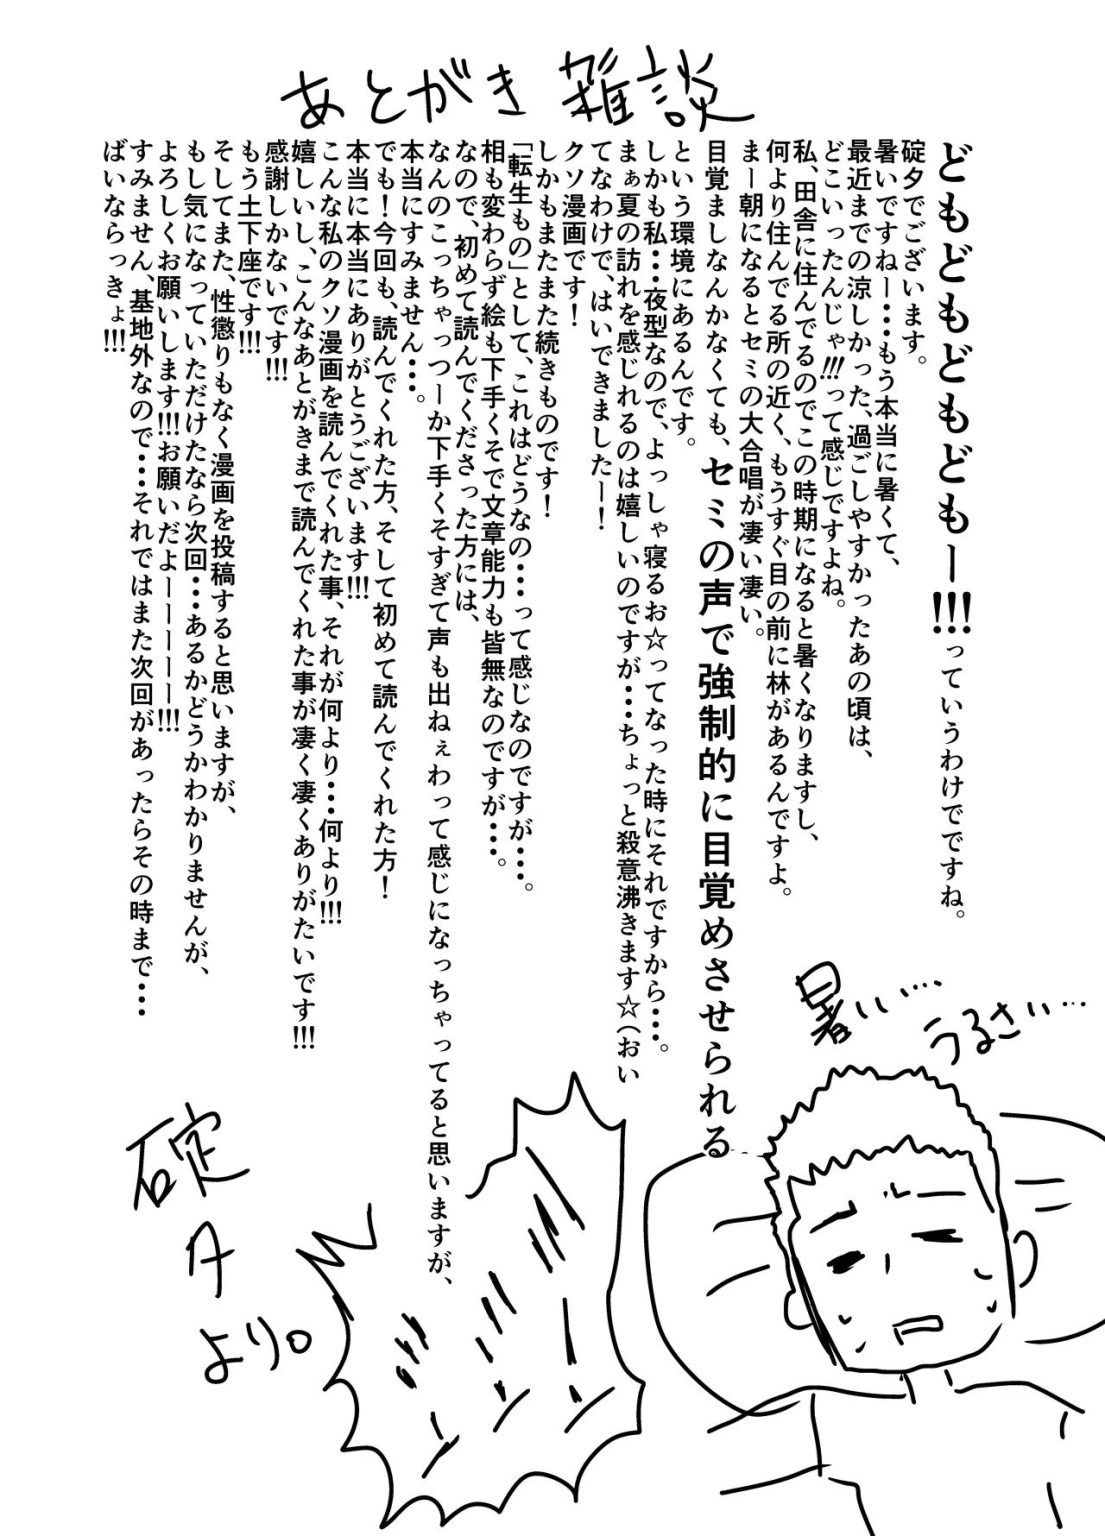 あとがき 雑談
どもどもどもどもー!!!っていうわけでですね。
碇夕でございます。
暑いですねー・・・もう本当に暑くて、
最近までの涼しかった、過ごしやすかったあの頃は、
どこいったんじゃ!!!って感じですよね。
私、田舎に住んでるのでこの時期になると暑くなりますし、
何より住んでる所の近く、もうすぐ目の前に林があるんですよ。
まー朝になるとセミの大合唱が凄い凄い。
目覚ましなんかなくても、セミの声で強制的に目覚めさせられる
という環境にあるんです。
しかも私・・・夜型なので、よっしゃ寝るお☆ってなった時にそれですから・・・。
まぁ夏の訪れを感じれるのは嬉しいのですが・・・ちょっと殺意沸きます☆(おい
てなわけで、はいできましたー!
クソ漫画です!
しかもまたまた続きものです!
「転生もの」として、これはどうなの・・・って感じなのですが・・・。
相も変わらず絵も下手くそで文章能力も皆無なのですが・・・。
なので、初めて読んでくださった方には、
なんのこっちゃっつーか下手くそすぎて声も出ねぇわって感じになっちゃってると思いますが、
本当にすみません・・・。
でも!今回も、読んでくれた方、そして初めて読んでくれた方!
本当に本当にありがとうございます!!!
こんな私のクソ漫画を読んでくれた事、それが何より・・・何より!!!
嬉しいし、こんなあとがきまで読んでくれた事が凄く凄くありがたいです!!!
感謝しかないです!!!
もう土下座です!!!
そしてまた、性懲りもなく漫画を投稿すると思いますが、
もし気になっていただけたなら次回・・・あるかどうかわかりませんが、
よろしくお願いします!!!お願いだよーーーーー!!!
すみません、基地外なので・・・それではまた次回があったらその時まで・・・
ばいならっきょ!!!
暑い…
うるさい…
ミーンミーンミーン
碇夕より。